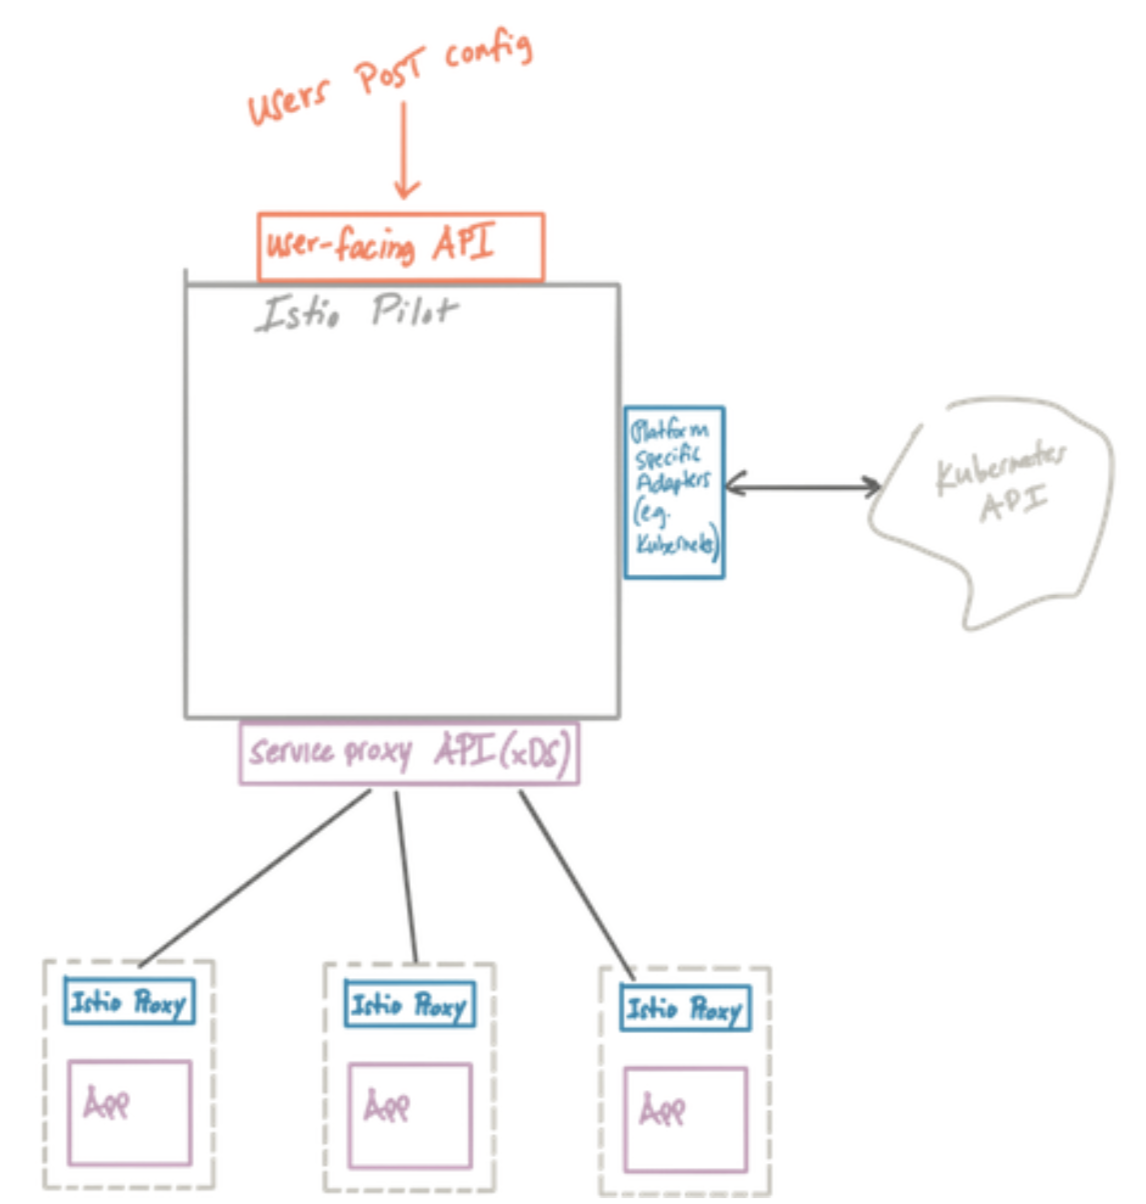 Users POST config
user-facing API
Istio Pilot
Platform
Specific
Adapters
(e.g.
Kubernetes)
Kubernetes
API
Service proxy API (xDS)
Istio Proxy
App
Istio Proxy
App
Istio Proxy
App